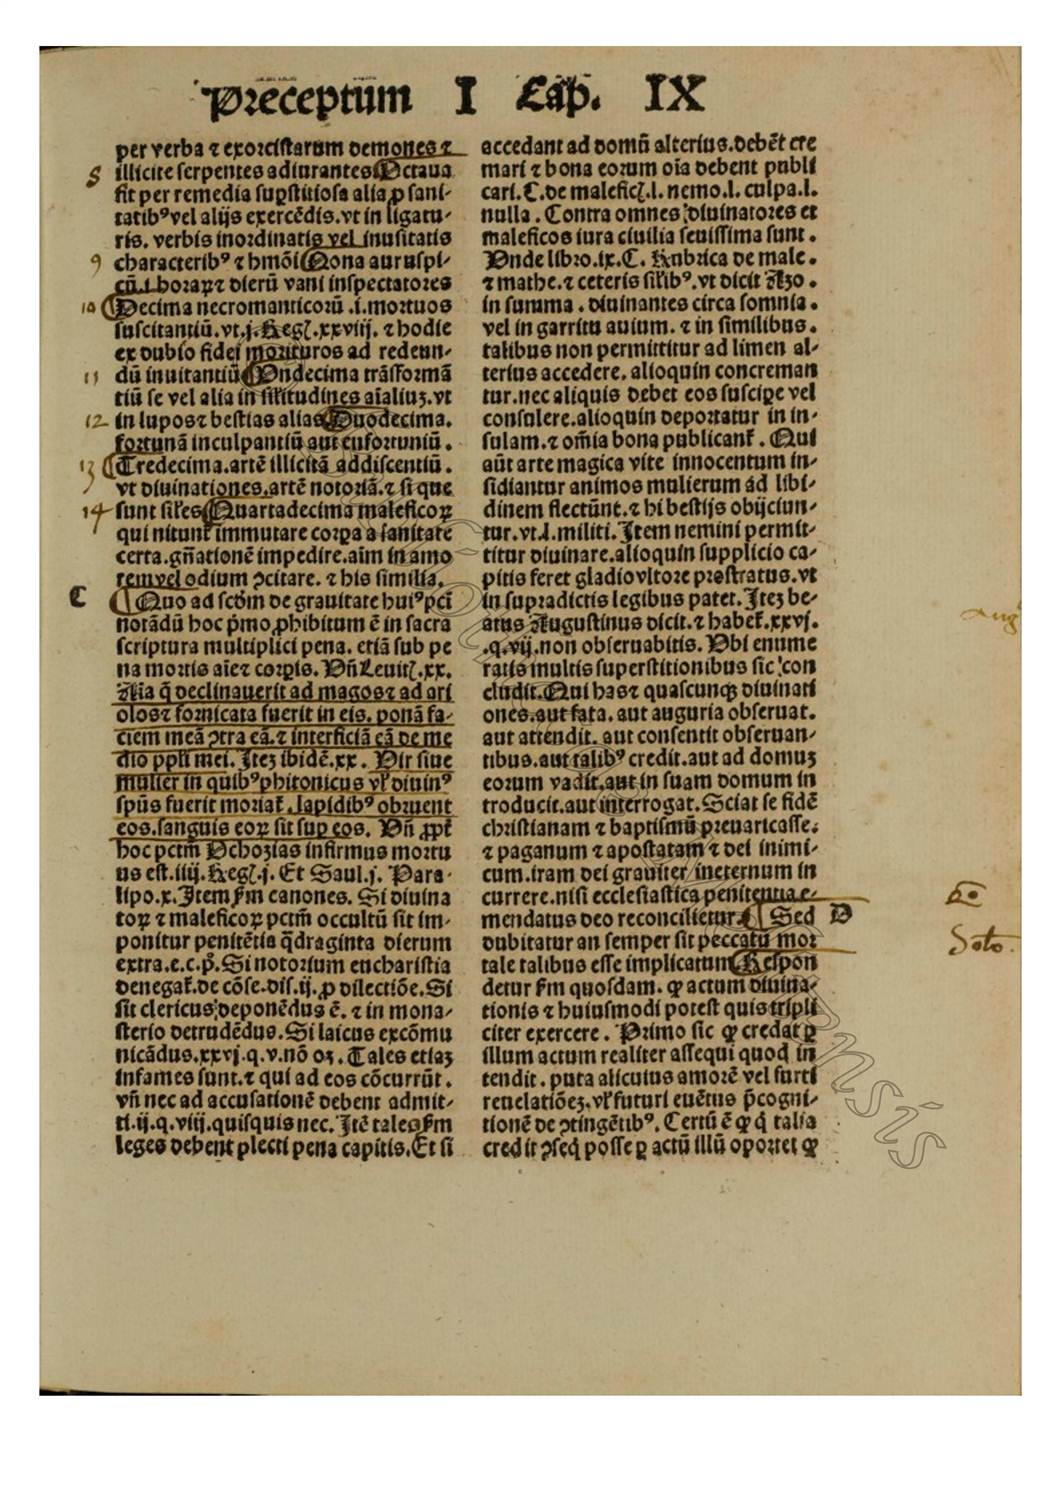 Preceptum I Cap. IX
per verba ⁊ exorcistarum demones ⁊
illicite serpentes adiurantes Octaua
fit per remedia supstitiosa alia ꝓ sani-
tatibꝰ vel alijs exercēdis. vt in ligatu-
ris. verbis inordinatis vel inusitatis
characteribꝰ ⁊ hmōi Nona auruspi-
cū .i. horaꝝ ⁊ dierū vani inspectatores
Decima necromanticorū .i. mortuos
suscitantiū. vt .j. Reg. xxviij. ⁊ hodie
ex dubio fidei morituros ad redeun-
dū inuitantiū Undecima trāsformā
tiū se vel alia in similitudines aīaliuꝫ. vt
in lupos ⁊ bestias alias Duodecima.
fortunā inculpantiū aut eufortuniū.
Tredecima. artē illicitā addiscentiū.
vt diuinationes. artē notoriā. ⁊ si que
sunt siles Quartadecima maleficoꝝ
qui nitunt immutare corpa a sanitate
certa. gn̄ationē impedire. aīm in amo
rem vel odium ↄcitare. ⁊ his similia.
C Quo ad scōm de grauitate huiꝰ pcti
notādū hoc pmo ꝓhibitum ē in sacra
scriptura multiplici pena. etiā sub pe
na mortis aīe ⁊ corpis. Vn̄ Leuit. xx.
Aīa q̄ declinauerit ad magos ⁊ ad ari
olos ⁊ fornicata fuerit in eis. ponā fa-
ciem meā ↄtra eā. ⁊ interficiā eā de me
dio ppli mei. Iteꝫ ibidē. xx. Vir siue
mulier in quibꝰ phitonicus vl diuinꝰ
spūs fuerit moriat. lapidibꝰ obruent
eos. sanguis eoꝝ sit sup eos. Vn̄ ꝓpt
hoc pctm Ochozias infirmus mortu
us est. iiij. Reg. j. Et Saul. j. Para-
lipo. x. Item fm canones. Si diuina
toꝝ ⁊ maleficoꝝ pctm occultū sit im-
ponitur penitētia q̄draginta dierum
extra. e. c. p̊. Si notorium eucharistia
denegat. de cōse. dis. ij. ꝓ dilectiōe. Si
sit clericus: deponēdus ē. ⁊ in mona-
sterio detrudēdus. Si laicus excōmu
nicādus. xxvj. q. v. nō oꝫ. Tales etiaꝫ
infames sunt. ⁊ qui ad eos cōcurrūt.
vn̄ nec ad accusationē debent admit-
ti. ij. q. viij. quisquis nec. Itē tales fm
leges debent plecti pena capitis. Et si
accedant ad domū alterius. debēt cre
mari ⁊ bona eorum oīa debent publi
cari. C. de malefic. l. nemo. l. culpa. l.
nulla. Contra omnes diuinatores et
maleficos iura ciuilia seuissima sunt.
Vnde libro. ix. C. Rubrica de male.
⁊ mathe. ⁊ ceteris silibꝰ. vt dicit Azo.
in summa. diuinantes circa somnia.
vel in garritu auium. ⁊ in similibus.
talibus non permittitur ad limen al-
terius accedere. alioquin concreman
tur. nec aliquis debet eos suscipe vel
consulere. alioquin deportatur in in-
sulam. ⁊ om̄ia bona publicant. Qui
aūt arte magica vite innocentum in-
sidiantur animos mulierum ad libi-
dinem flectūnt. ⁊ hi bestijs obijciun-
tur. vt. l. militi. Item nemini permit-
titur diuinare. alioquin supplicio ca-
pitis feret gladio vltore prostratus. vt
in supradictis legibus patet. Iteꝫ be-
atus Augustinus dicit. ⁊ habet. xxvj.
.q. vij. non obseruabitis. Vbi enume
ratis multis superstitionibus sic con
cludit. Qui has ⁊ quascunqꝫ diuinati
ones. aut fata. aut auguria obseruat.
aut attendit. aut consentit obseruan-
tibus. aut talibꝰ credit. aut ad domuꝫ
eorum vadit. aut in suam domum in
troducit. aut interrogat. Sciat se fidē
christianam ⁊ baptismū preuaricasse.
⁊ paganum ⁊ apostatam ⁊ dei inimi-
cum. iram dei grauiter ineternum in
currere. nisi ecclesiastica penitentia e-
mendatus deo reconcilietur. Sed D
dubitatur an semper sit peccatū mor
tale talibus esse implicatum Respon
detur fm quosdam. ꝙ actum diuina-
tionis ⁊ huiusmodi potest quis tripli
citer exercere. Primo sic ꝙ credat ꝑ
illum actum realiter assequi quod in
tendit. puta alicuius amorē vel furti
reuelatiōeꝫ. vl futuri euētus p̄cogni-
tionē de ↄtingētibꝰ. Certū ē ꝙ q̄ talia
credit ↄseq posse ꝑ actū illū oportet ꝙ
8
9
10
11
12
13
14
Aug
Soto.